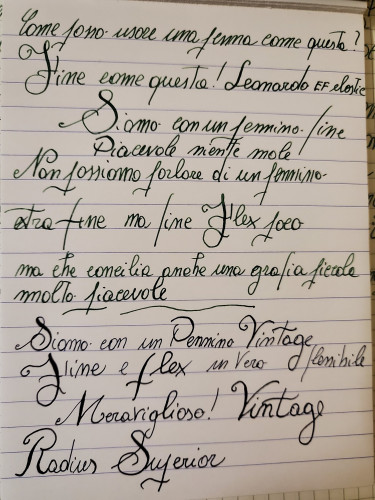 Come posso usare una penna come questa?
Fine come questa! Leonardo EF elastic
Siamo con un pennino fine
Piacevole niente male
Non possiamo parlare di un pennino
extra fine ma fine Flex poco
ma che concilia anche una grafia piccola
molto piacevole
Siamo con un Pennino Vintage
Fine e flex un vero flessibile
Meraviglioso! Vintage
Radius Superior